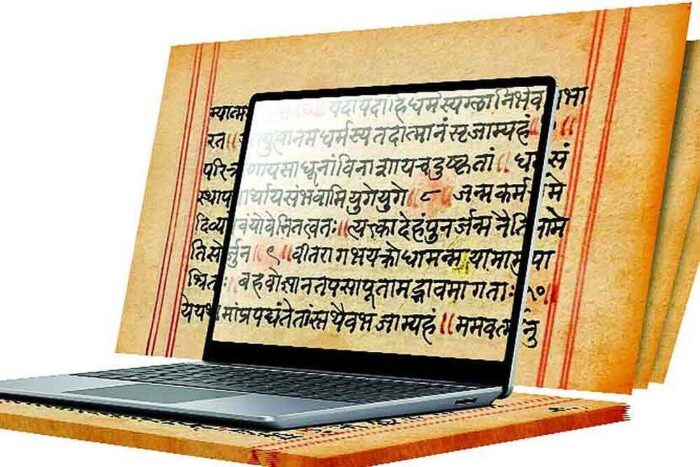 यदायदाहिधर्मस्यग्लानिर्भव भा
रत॥ भ्युत्थानमधर्मस्यतदात्मानंसृजाम्यहं ॥
परित्राणायसाधूनांविनाशायचदुष्कृतां॥ धर्मसं
स्थापनार्थायसंभवामियुगेयुगे॥८॥ जन्मकर्म मे
दिव्य वंयोवेत्तितत्वतः॥ त्यक्त्वादेहंपुनर्जन्मनैतिमामे
तिसोर्जुन॥९॥ वीतरागभयक्रोधामन्मयामामुपा
श्रिताः॥ बहवोज्ञानतपसापूतामद्भावमागताः॥१०॥
येयथामांप्रपद्यंतेतांस्तथैवभजाम्यहं॥ ममवर्त्मानु